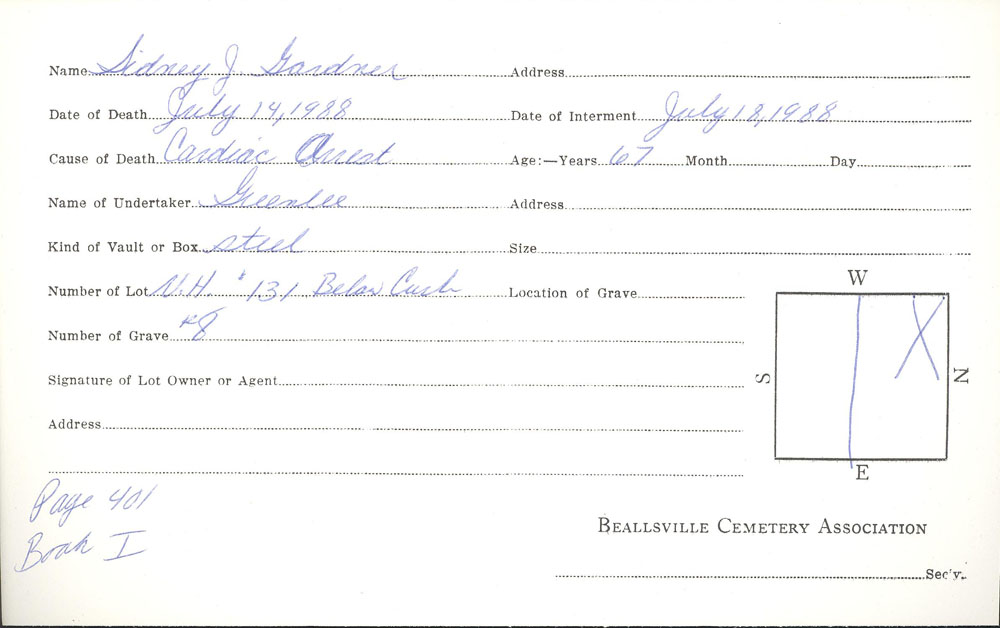 Name Sidney J. Gardner Address
Date of Death July 14, 1988 Date of Interment July 18, 1988
Cause of Death Cardiac Arrest Age:—Years 67 Month Day
Name of Undertaker Greenlee Address
Kind of Vault or Box steel Size
Number of Lot N.H. # 131 Below Curb Location of Grave
W
Number of Grave #8
S
N
Signature of Lot Owner or Agent
Address
E
Page 401
Book I
BEALLSVILLE CEMETERY ASSOCIATION
Sec'y.